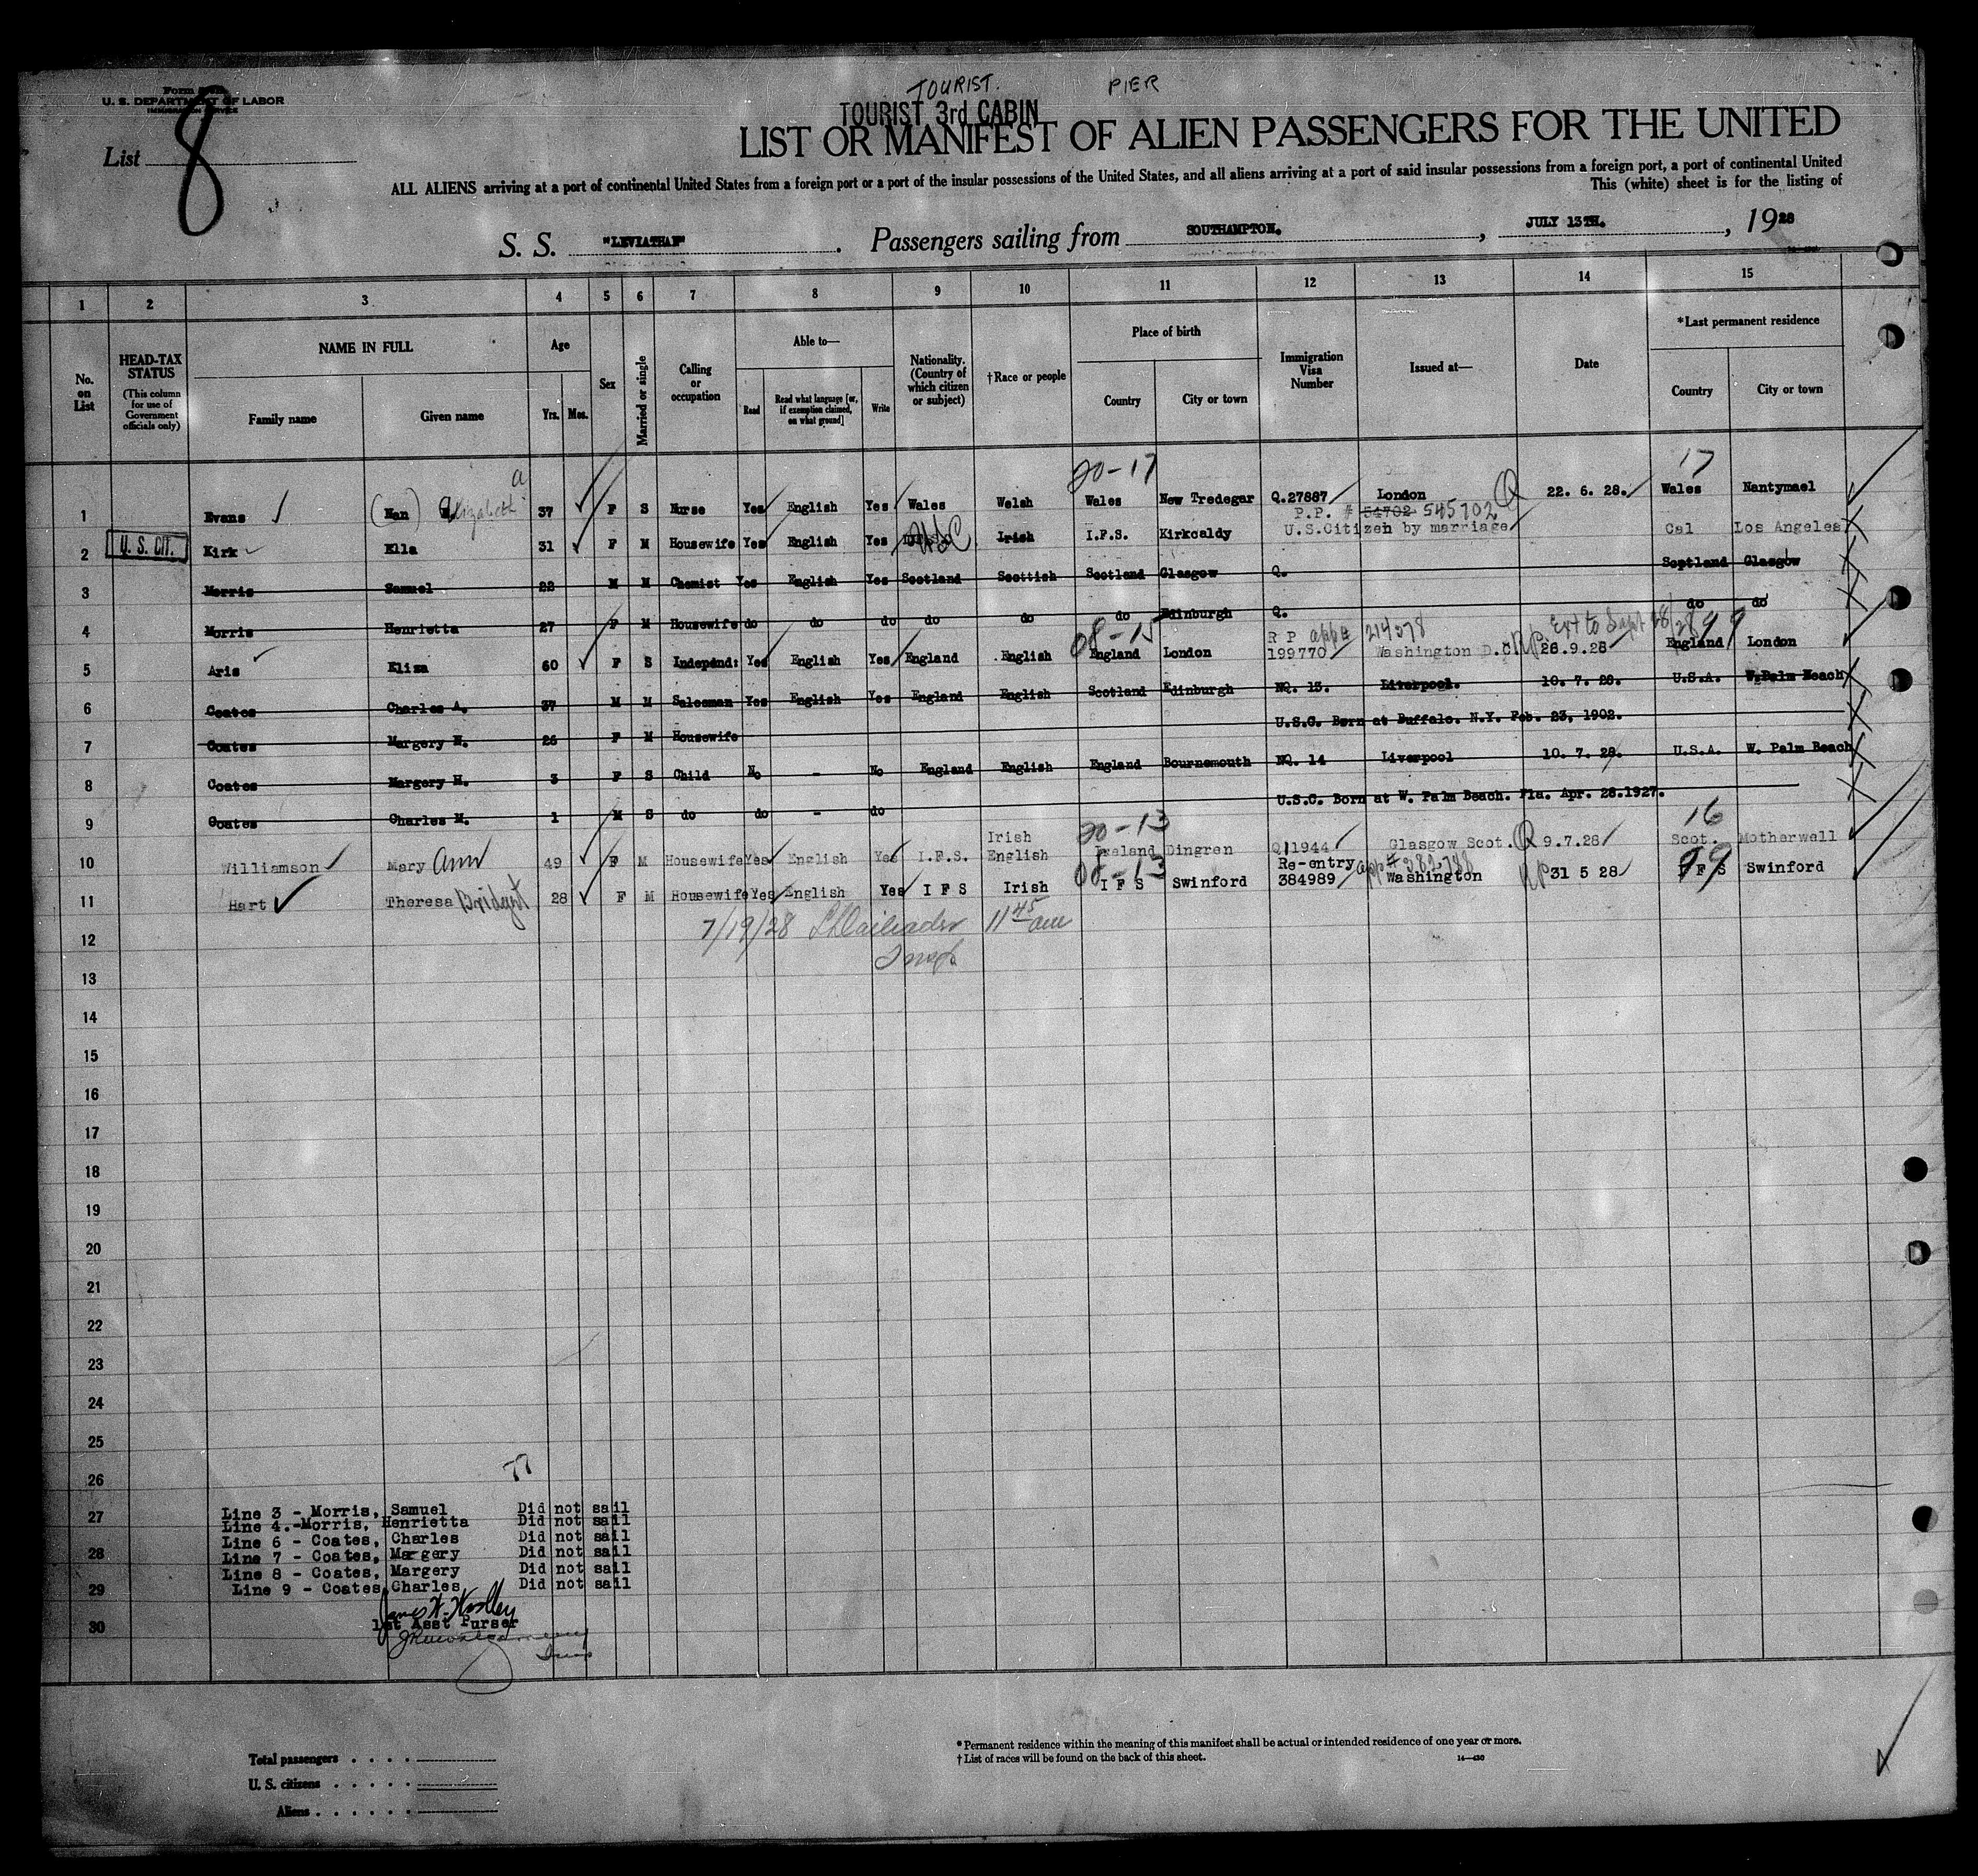 TOURIST. PIER
Form
U. S. DEPARTMENT OF LABOR
IMMIGRATION SERVICE
TOURIST 3rd CABIN
LIST OR MANIFEST OF ALIEN PASSENGERS FOR THE UNITED
List 8
ALL ALIENS arriving at a port of continental United States from a foreign port or a port of the insular possessions of the United States, and all aliens arriving at a port of said insular possessions from a foreign port, a port of continental United
This (white) sheet is for the listing of
S. S. "LEVIATHAN". Passengers sailing from SOUTHAMPTON., JULY 13TH., 1928
1 2 3 4 5 6 7 8 9 10 11 12 13 14 15
No. on List
HEAD-TAX STATUS
(This column for use of Government officials only)
NAME IN FULL
Family name Given name
Age
Yrs. Mos.
Sex
Married or single
Calling or occupation
Able to—
Read Read what language [or, if exemption claimed, on what ground] Write
Nationality. (Country of which citizen or subject)
†Race or people
Place of birth
Country City or town
Immigration Visa Number
Issued at—
Date
*Last permanent residence
Country City or town
20-17 17
1 Evans (Nan) Elizabeth a 37 F S Nurse Yes English Yes Wales Welsh Wales New Tredegar Q.27887 London Q 22. 6. 28. Wales Nantymael
P.P. # 54702 545702
2 U. S. CIT. Kirk Ella 31 F M Housewife Yes English Yes USC Irish I.F.S. Kirkcaldy U.S.Citizen by marriage Cal Los Angeles
3 Morris Samuel 22 M M Chemist Yes English Yes Scotland Scottish Scotland Glasgow Q. Scotland Glasgow
4 Morris Henrietta 27 F M Housewife do do do do do do Edinburgh Q. do do
08-15 R P app# 214578 Ext to Sept 28/28 99
5 Aris Eliza 60 F S Independ: Yes English Yes England English England London 199770 Washington D.C. RP 28.9.28 England London
6 Coates Charles A. 37 M M Salesman Yes English Yes England English Scotland Edinburgh NQ. 13. Liverpool. 10. 7. 28. U.S.A. W.Palm Beach
7 Coates Margery N. 26 F M Housewife U.S.C. Born at Buffalo. N.Y. Feb. 23, 1902.
8 Coates Margery H. 3 F S Child No - No England English England Bournemouth NQ. 14 Liverpool 10. 7. 28. U.S.A. W. Palm Beach
9 Coates Charles M. 1 M S do do - do U.S.C. Born at W. Palm Beach. Fla. Apr. 28.1927.
Irish 20-13 16
10 Williamson Mary Ann 49 F M Housewife Yes English Yes I.F.S. English Ireland Dingren Q11944 Glasgow Scot. Q 9.7.28 Scot. Motherwell
08-13 Re-entry app # 382788 99
11 Hart Theresa Bridget 28 F M Housewife Yes English Yes I F S Irish I F S Swinford 384989 Washington RP 31 5 28 I F S Swinford
12 7/19/28 11 45 am
Insp
13
14
15
16
17
18
19
20
21
22
23
24
25
26 77
27
28
29
30
Line 3 - Morris, Samuel Did not sail
Line 4.-Morris, Henrietta Did not sail
Line 6 - Coates, Charles Did not sail
Line 7 - Coates, Margery Did not sail
Line 8 - Coates, Margery Did not sail
Line 9 - Coates Charles Did not sail
James W. Woolley
1st Asst Purser
Insp
Total passengers . . . .
U. S. citizens . . . . .
Aliens . . . . . .
*Permanent residence within the meaning of this manifest shall be actual or intended residence of one year or more.
†List of races will be found on the back of this sheet.
14—430